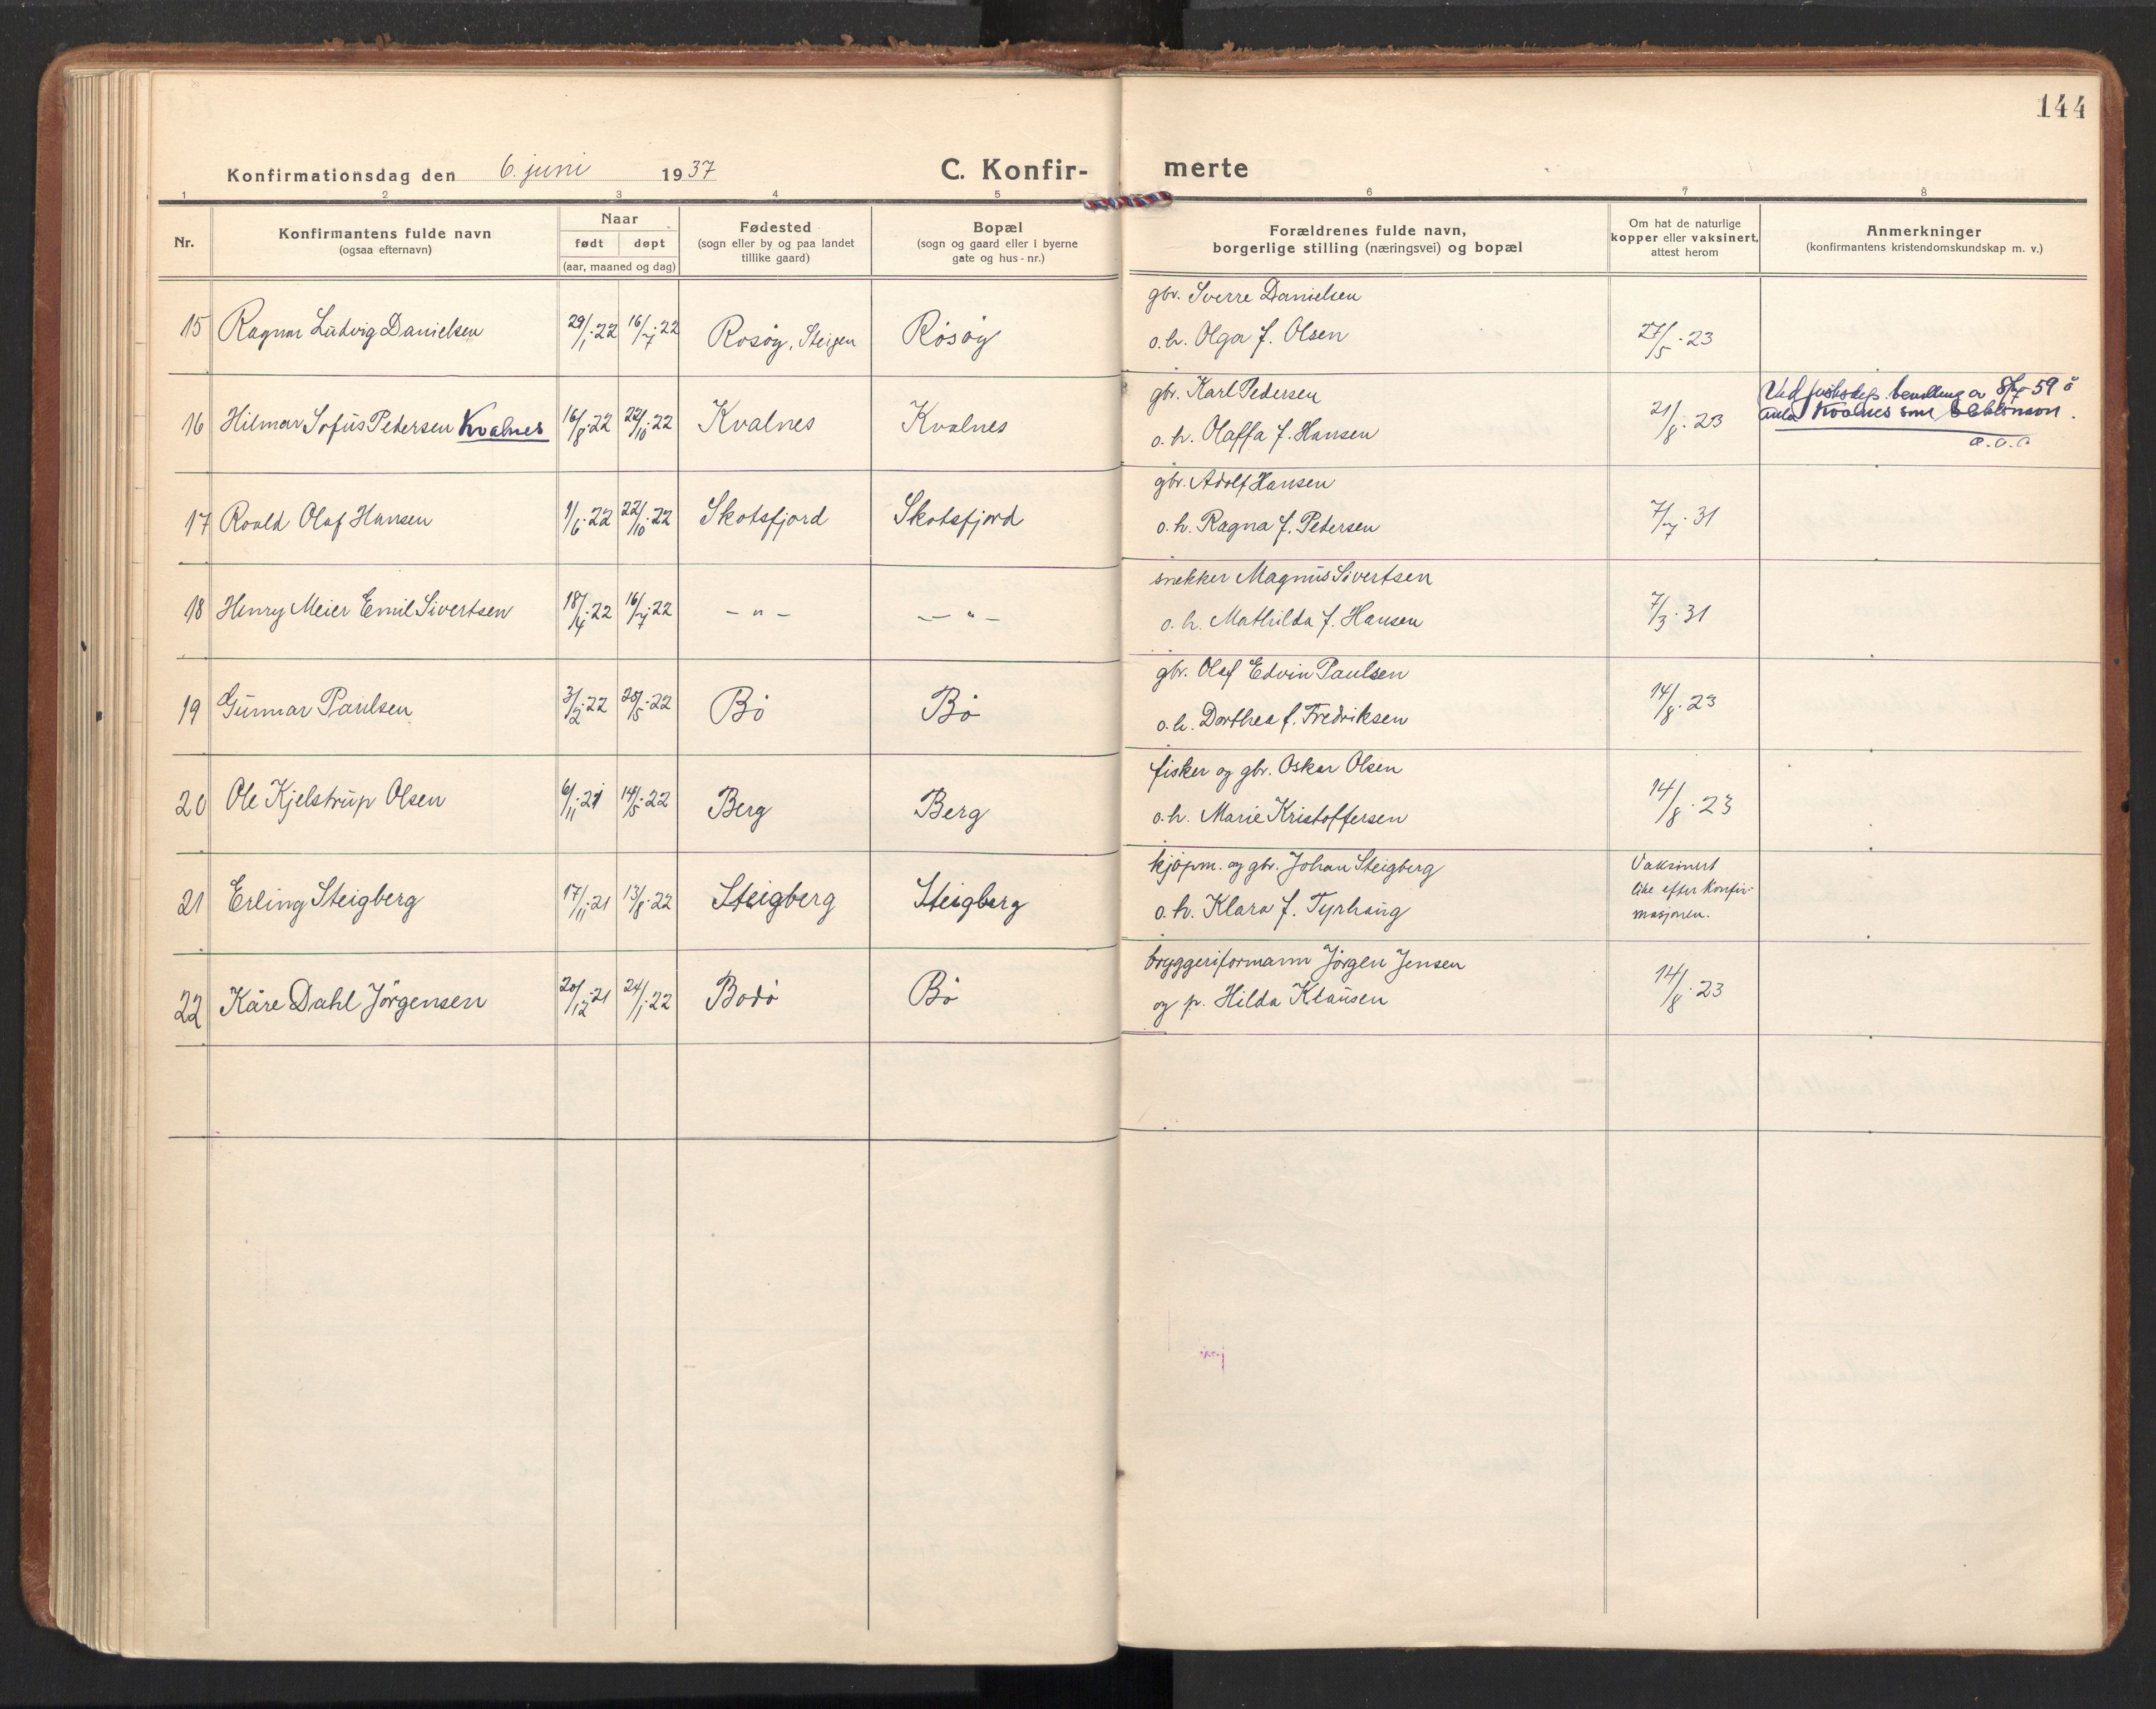 144
Konfirmationsdag den 6. juni 1937 C. Konfir- merte
1 2 3 4 5 6 7 8
Nr.
Konfirmantens fulde navn
(ogsaa efternavn)
Naar
født døpt
(aar, maaned og dag)
Fødested
(sogn eller by og paa landet
tillike gaard)
Bopæl
(sogn og gaard eller i byerne
gate og hus-nr.)
Forældrenes fulde navn,
borgerlige stilling (næringsvei) og bopæl
Om hat de naturlige
kopper eller vaksinert,
attest herom
Anmerkninger
(konfirmantens kristendomskundskap m. v.)
gbr. Sverre Danielsen
15 Ragnar Ludvig Danielsen 29/1.22 16/7.22 Rosøy, Steigen Røsøy
o.h. Olga f. Olsen 27/5.23
gbr. Karl Pedersen
16 Hilmar Sofus Pedersen Kvalnes 16/8.22 22/10.22 Kvalnes Kvalnes
o.h. Olaffa f. Hansen 21/8.23
av 8/7-59 å
Kvalnes som
gbr. Adolf Hansen
17 Roald Olaf Hansen 1/6.22 22/10.22 Skotsfjord Skotsfjord
o.h. Ragna f. Petersen 7/7.31
snekker Magnus Sivertsen
18 Henry Meier Emil Sivertsen 18/4.22 16/7.22 - " - - " -
o.h. Mathilda f. Hansen 7/3.31
gbr. Olaf Edvin Paulsen
19 Gunnar Paulsen 3/2.22 28/5.22 Bø Bø
o.h. Dorthea f. Fredriksen 14/8.23
fisker og gbr. Oskar Olsen
20 Ole Kjelstrup Olsen 6/11.21 14/5.22 Berg Berg
o.h. Marie Kristoffersen 14/8.23
kjøpm. og gbr. Johan Steigberg
21 Erling Steigberg 17/11.21 13/8.22 Steigberg Steigberg
o.h. Klara f. Tyrhaug
Vaksinert
like efter Konfir-
masjonen.
bryggeriformann Jørgen Jensen
22 Kåre Dahl Jørgensen 20/12.21 24/1.22 Bodø Bø
og p. Hilda Klausen 14/8.23